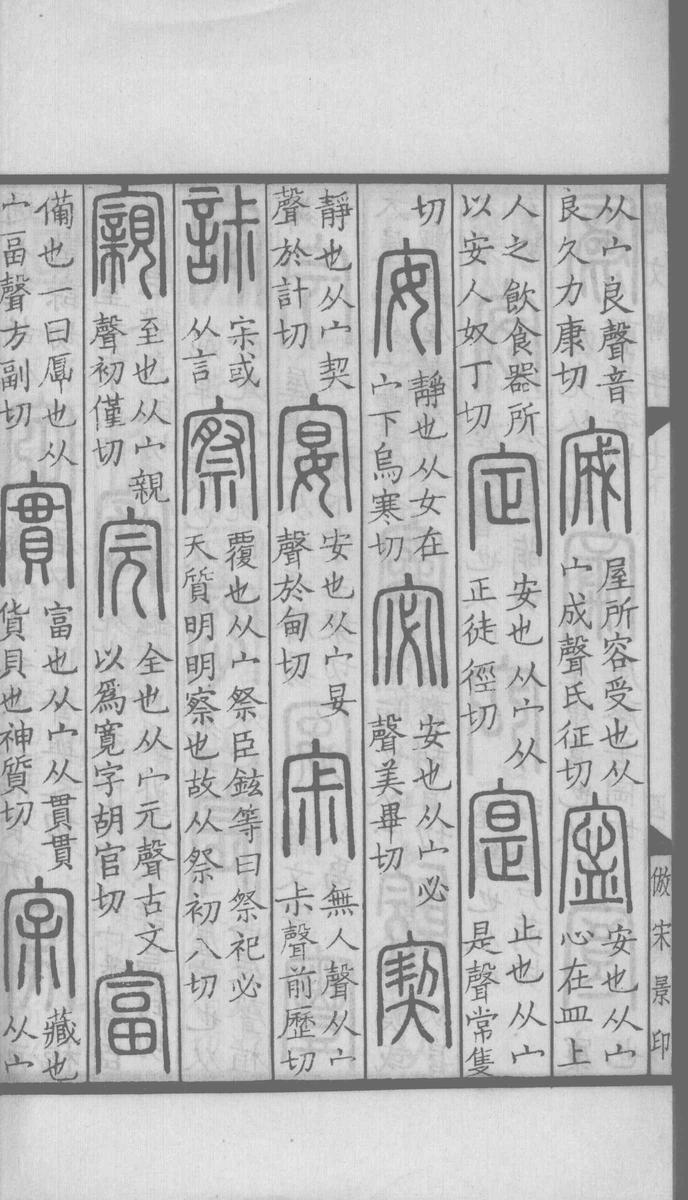 从宀良聲音良久力康切宬屋所容受也从宀成聲氏征切寍安也从宀心在皿上
人之飲食器所以安人奴丁切定安也从宀从正徒徑切寔止也从宀是聲常隻
切安靜也从女在宀下烏寒切宓安也从宀必聲美畢切窫
靜也从宀契聲於計切宴安也从宀妟聲於甸切𡧘無人聲从宀尗聲前歷切
𧧸𡧘或从言察覆也从宀祭臣鉉等曰祭祀必天質明明察也故从祭初八切
寴至也从宀親聲初僅切完全也从宀元聲古文以爲寬字胡官切富
備也一曰厚也从宀畐聲方副切實富也从宀从貫貫貨貝也神質切宲藏也从宀
倣宋景印